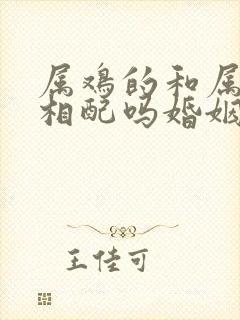 属鸡的和属
相配吗婚姻
王佳可